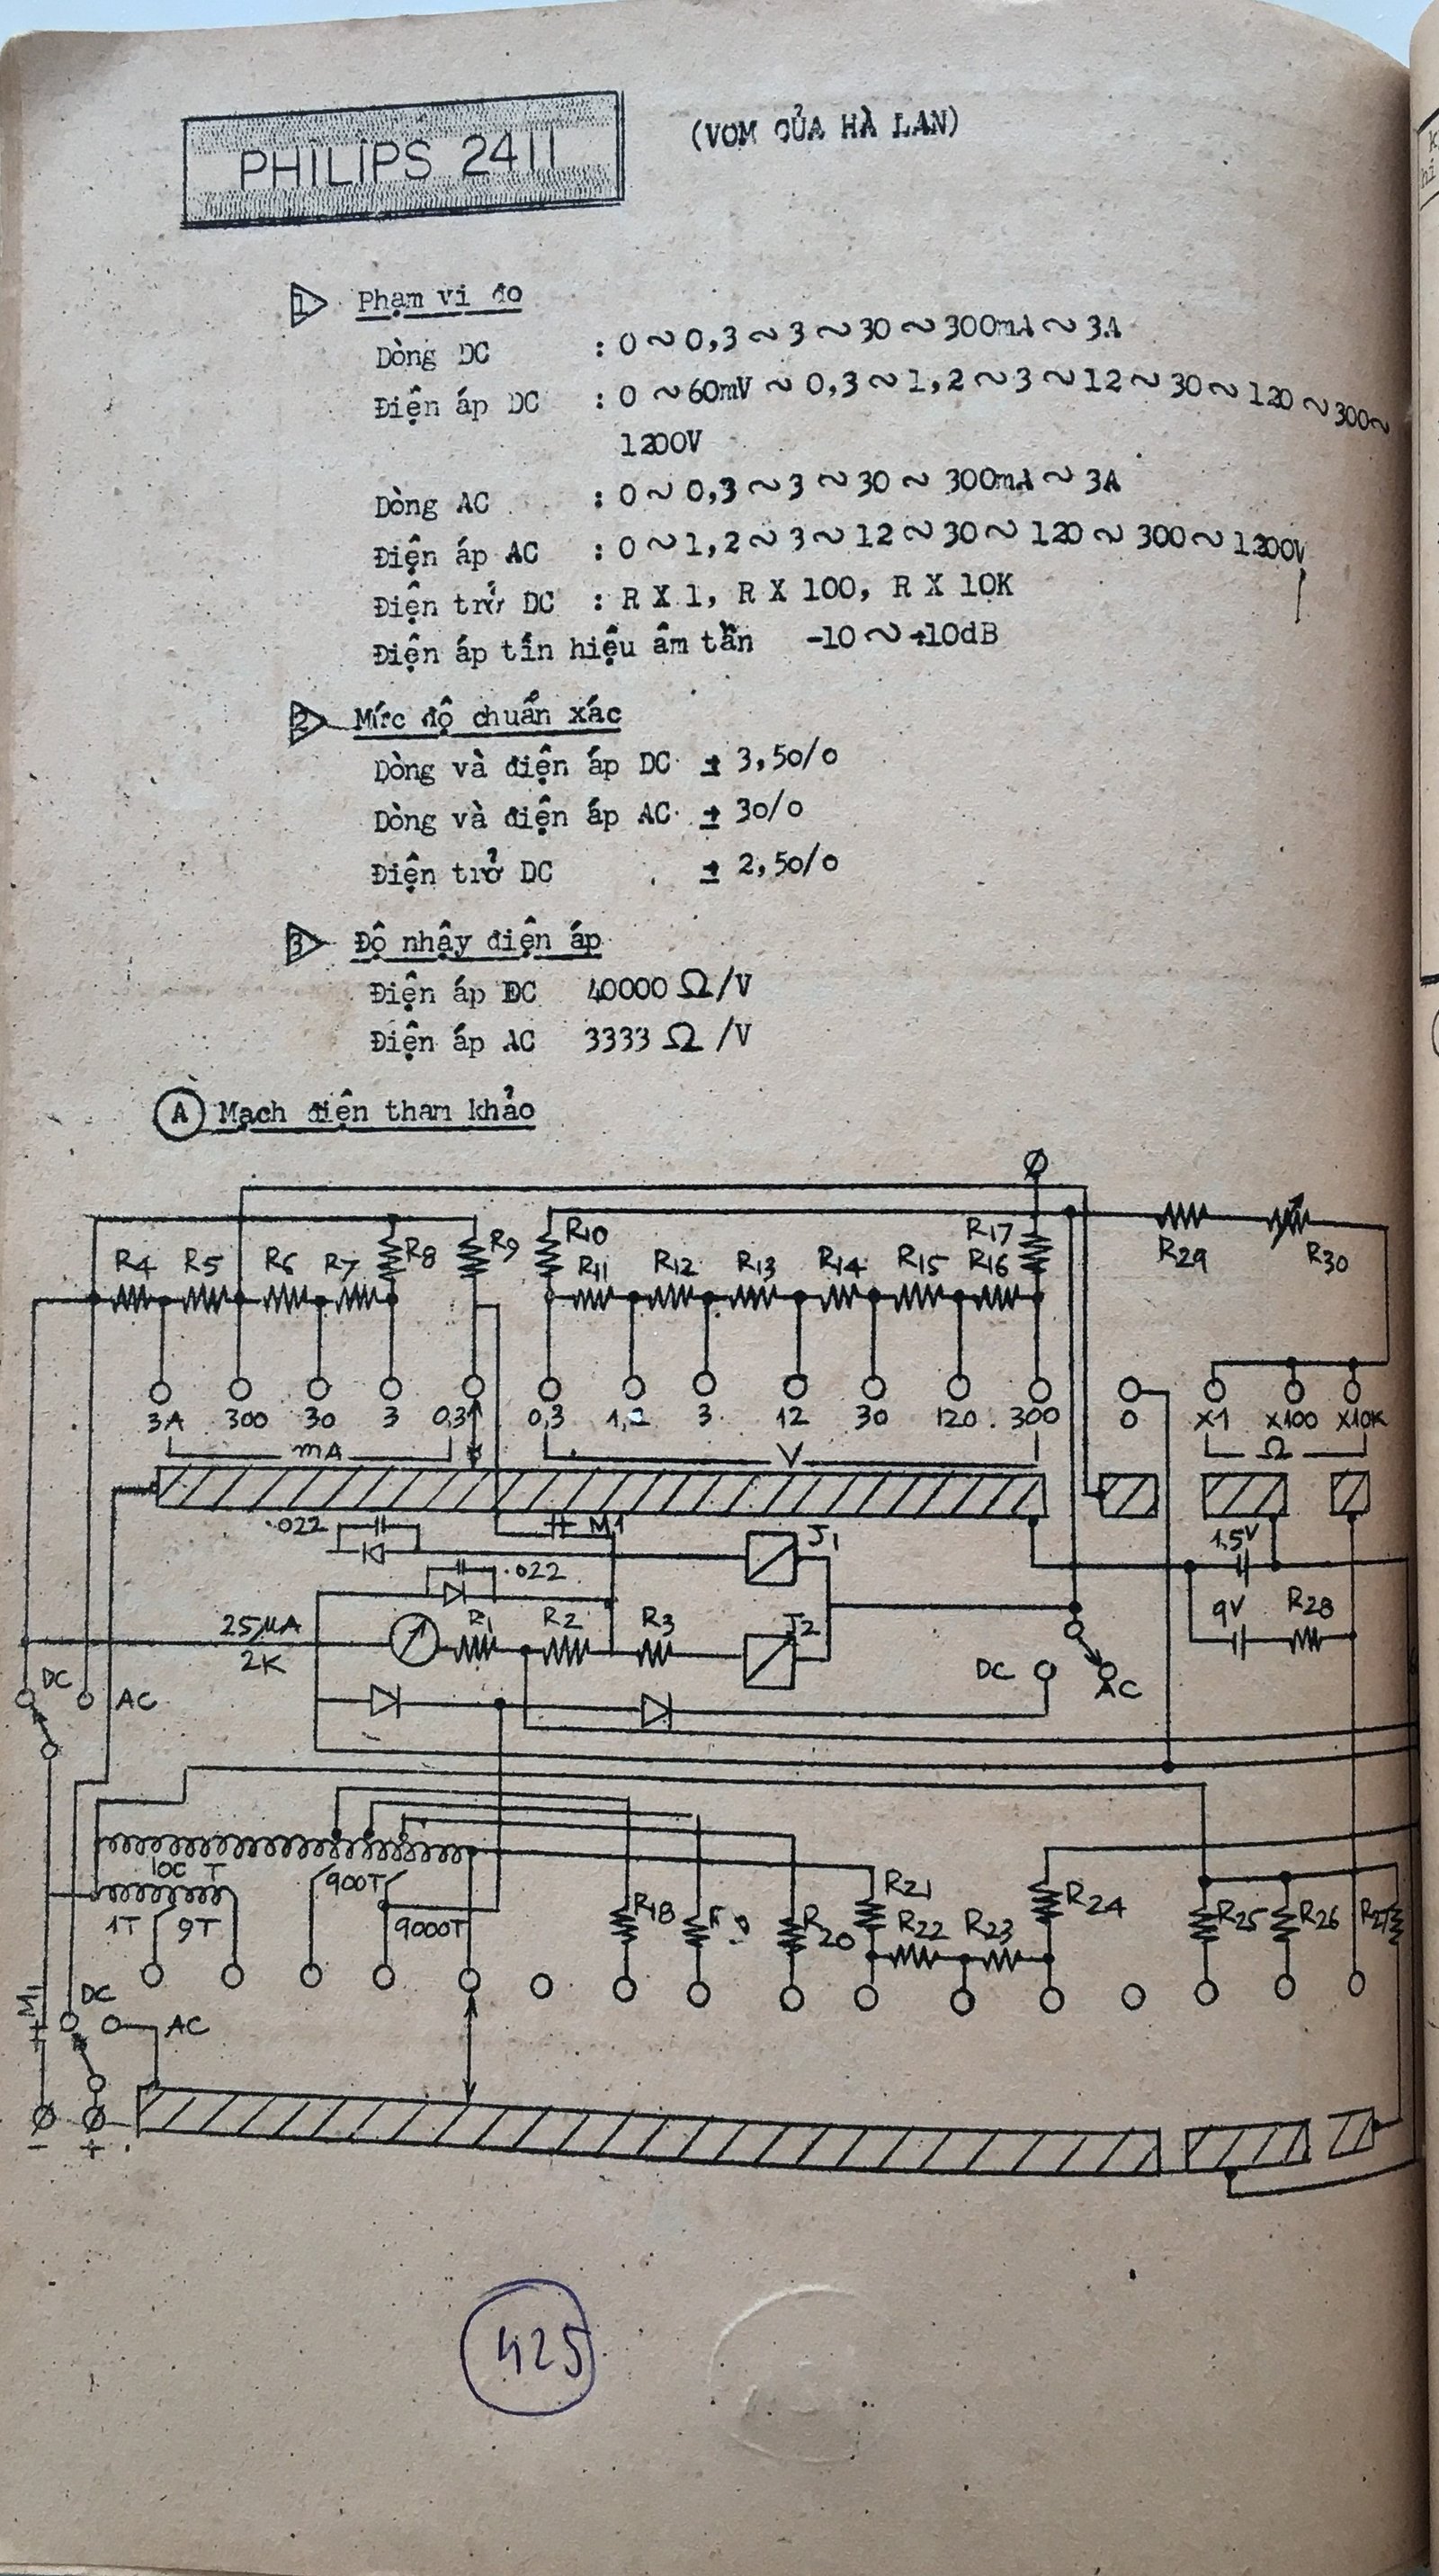 PHILIPS 2411
(VOM CỦA HÀ LAN)
1 Phạm vi đo
Dòng DC : 0 ~ 0,3 ~ 3 ~ 30 ~ 300mA ~ 3A
Điện áp DC : 0 ~ 60mV ~ 0,3 ~ 1,2 ~ 3 ~ 12 ~ 30 ~ 120 ~ 300 ~
1200V
Dòng AC : 0 ~ 0,3 ~ 3 ~ 30 ~ 300mA ~ 3A
Điện áp AC : 0 ~ 1,2 ~ 3 ~ 12 ~ 30 ~ 120 ~ 300 ~ 1200V
Điện trở DC : R X 1, R X 100, R X 10K
Điện áp tín hiệu âm tần -10 ~ +10dB
2 Mức độ chuẩn xác
Dòng và điện áp DC ± 3,5o/o
Dòng và điện áp AC ± 3o/o
Điện trở DC ± 2,5o/o
3 Độ nhậy điện áp
Điện áp DC 40000 Ω/V
Điện áp AC 3333 Ω /V
A Mạch điện tham khảo
R4 R5 R6 R7 R8 R9 R10 R11 R12 R13 R14 R15 R16 R17 R29 R30
3A 300 30 3 0,3 0,3 1,2 3 12 30 120 300 0 X1 X100 X10K
mA V Ω
.022 M1 J1 1,5V
.022
25µA R1 R2 R3 J2 9V R28
2K
DC AC DC AC
100 T 900T
1T 9T 9000T R18 R20 R21 R22 R23 R24 R25 R26 R27
M1 DC AC
- +
425